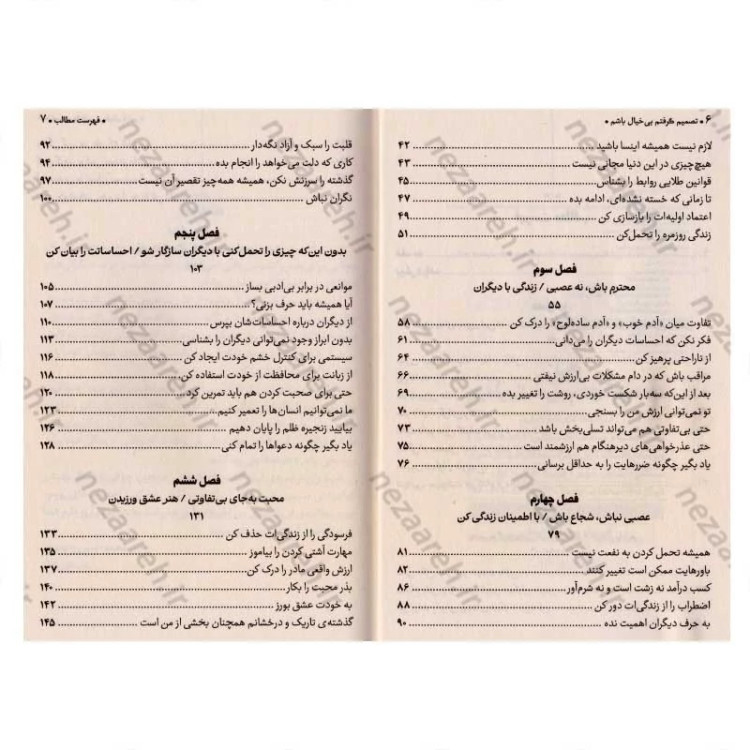 ۶ • تصمیم گرفتم بی‌خیال باشم •
لازم نیست همیشه اینسا باشید ۴۲
هیچ‌چیزی در این دنیا مجانی نیست ۴۳
قوانین طلایی روابط را بشناس ۴۵
تا زمانی که خسته نشده‌ای، ادامه بده ۴۷
اعتماد اولیه‌ات را بازسازی کن ۴۹
زندگی روزمره را تحمل‌کن ۵۱
فصل سوم
محترم باش، نه عصبی / زندگی با دیگران
۵۵
تفاوت میان «آدم خوب» و «آدم ساده‌لوح» را درک کن ۵۸
فکر نکن که احساسات دیگران را می‌دانی ۶۱
از ناراحتی پرهیز کن ۶۴
مراقب باش که در دام مشکلات بی‌ارزش نیفتی ۶۶
بعد از این‌که سه‌بار شکست خوردی، روشت را تغییر بده ۶۹
تو نمی‌توانی ارزش من را بسنجی ۷۰
حتی بی‌تفاوتی هم می‌تواند تسلی‌بخش باشد ۷۳
حتی عذرخواهی‌های دیرهنگام هم ارزشمند است ۷۵
یاد بگیر چگونه ضررهایت را به حداقل برسانی ۷۶
فصل چهارم
عصبی نباش، شجاع باش / با اطمینان زندگی کن
۷۹
همیشه تحمل کردن به نفعت نیست ۸۱
باورهایت ممکن است تغییر کنند ۸۲
کسب درآمد نه زشت است و نه شرم‌آور ۸۶
اضطراب را از زندگی‌ات دور کن ۸۸
به حرف دیگران اهمیت نده ۹۰
• فهرست مطالب • ۷
قلبت را سبک و آزاد نگه‌دار ۹۲
کاری که دلت می‌خواهد را انجام بده ۹۴
گذشته را سرزنش نکن، همیشه همه‌چیز تقصیر آن نیست ۹۷
نگران نباش ۱۰۰
فصل پنجم
بدون این‌که چیزی را تحمل‌کنی با دیگران سازگار شو / احساساتت را بیان کن
۱۰۳
موانعی در برابر بی‌ادبی بساز ۱۰۵
آیا همیشه باید حرف بزنی؟ ۱۰۷
از دیگران درباره احساسات‌شان بپرس ۱۱۰
بدون ابراز وجود نمی‌توانی دیگران را بشناسی ۱۱۳
سیستمی برای کنترل خشم خودت ایجاد کن ۱۱۶
از زبانت برای محافظت از خودت استفاده کن ۱۱۸
حتی برای صحبت کردن هم باید تمرین کرد ۱۲۰
ما نمی‌توانیم انسان‌ها را تعمیر کنیم ۱۲۳
بیایید زنجیره ظلم را پایان دهیم ۱۲۶
یاد بگیر چگونه دعواها را تمام کنی ۱۲۸
فصل ششم
محبت به‌جای بی‌تفاوتی / هنر عشق ورزیدن
۱۳۱
فرسودگی را از زندگی‌ات حذف کن ۱۳۳
مهارت آشتی کردن را بیاموز ۱۳۵
ارزش واقعی مادر را درک کن ۱۳۷
بذر محبت را بکار ۱۴۰
به خودت عشق بورز ۱۴۲
گذشته‌ی تاریک و درخشانم همچنان بخشی از من است ۱۴۵
nezaareh.ir